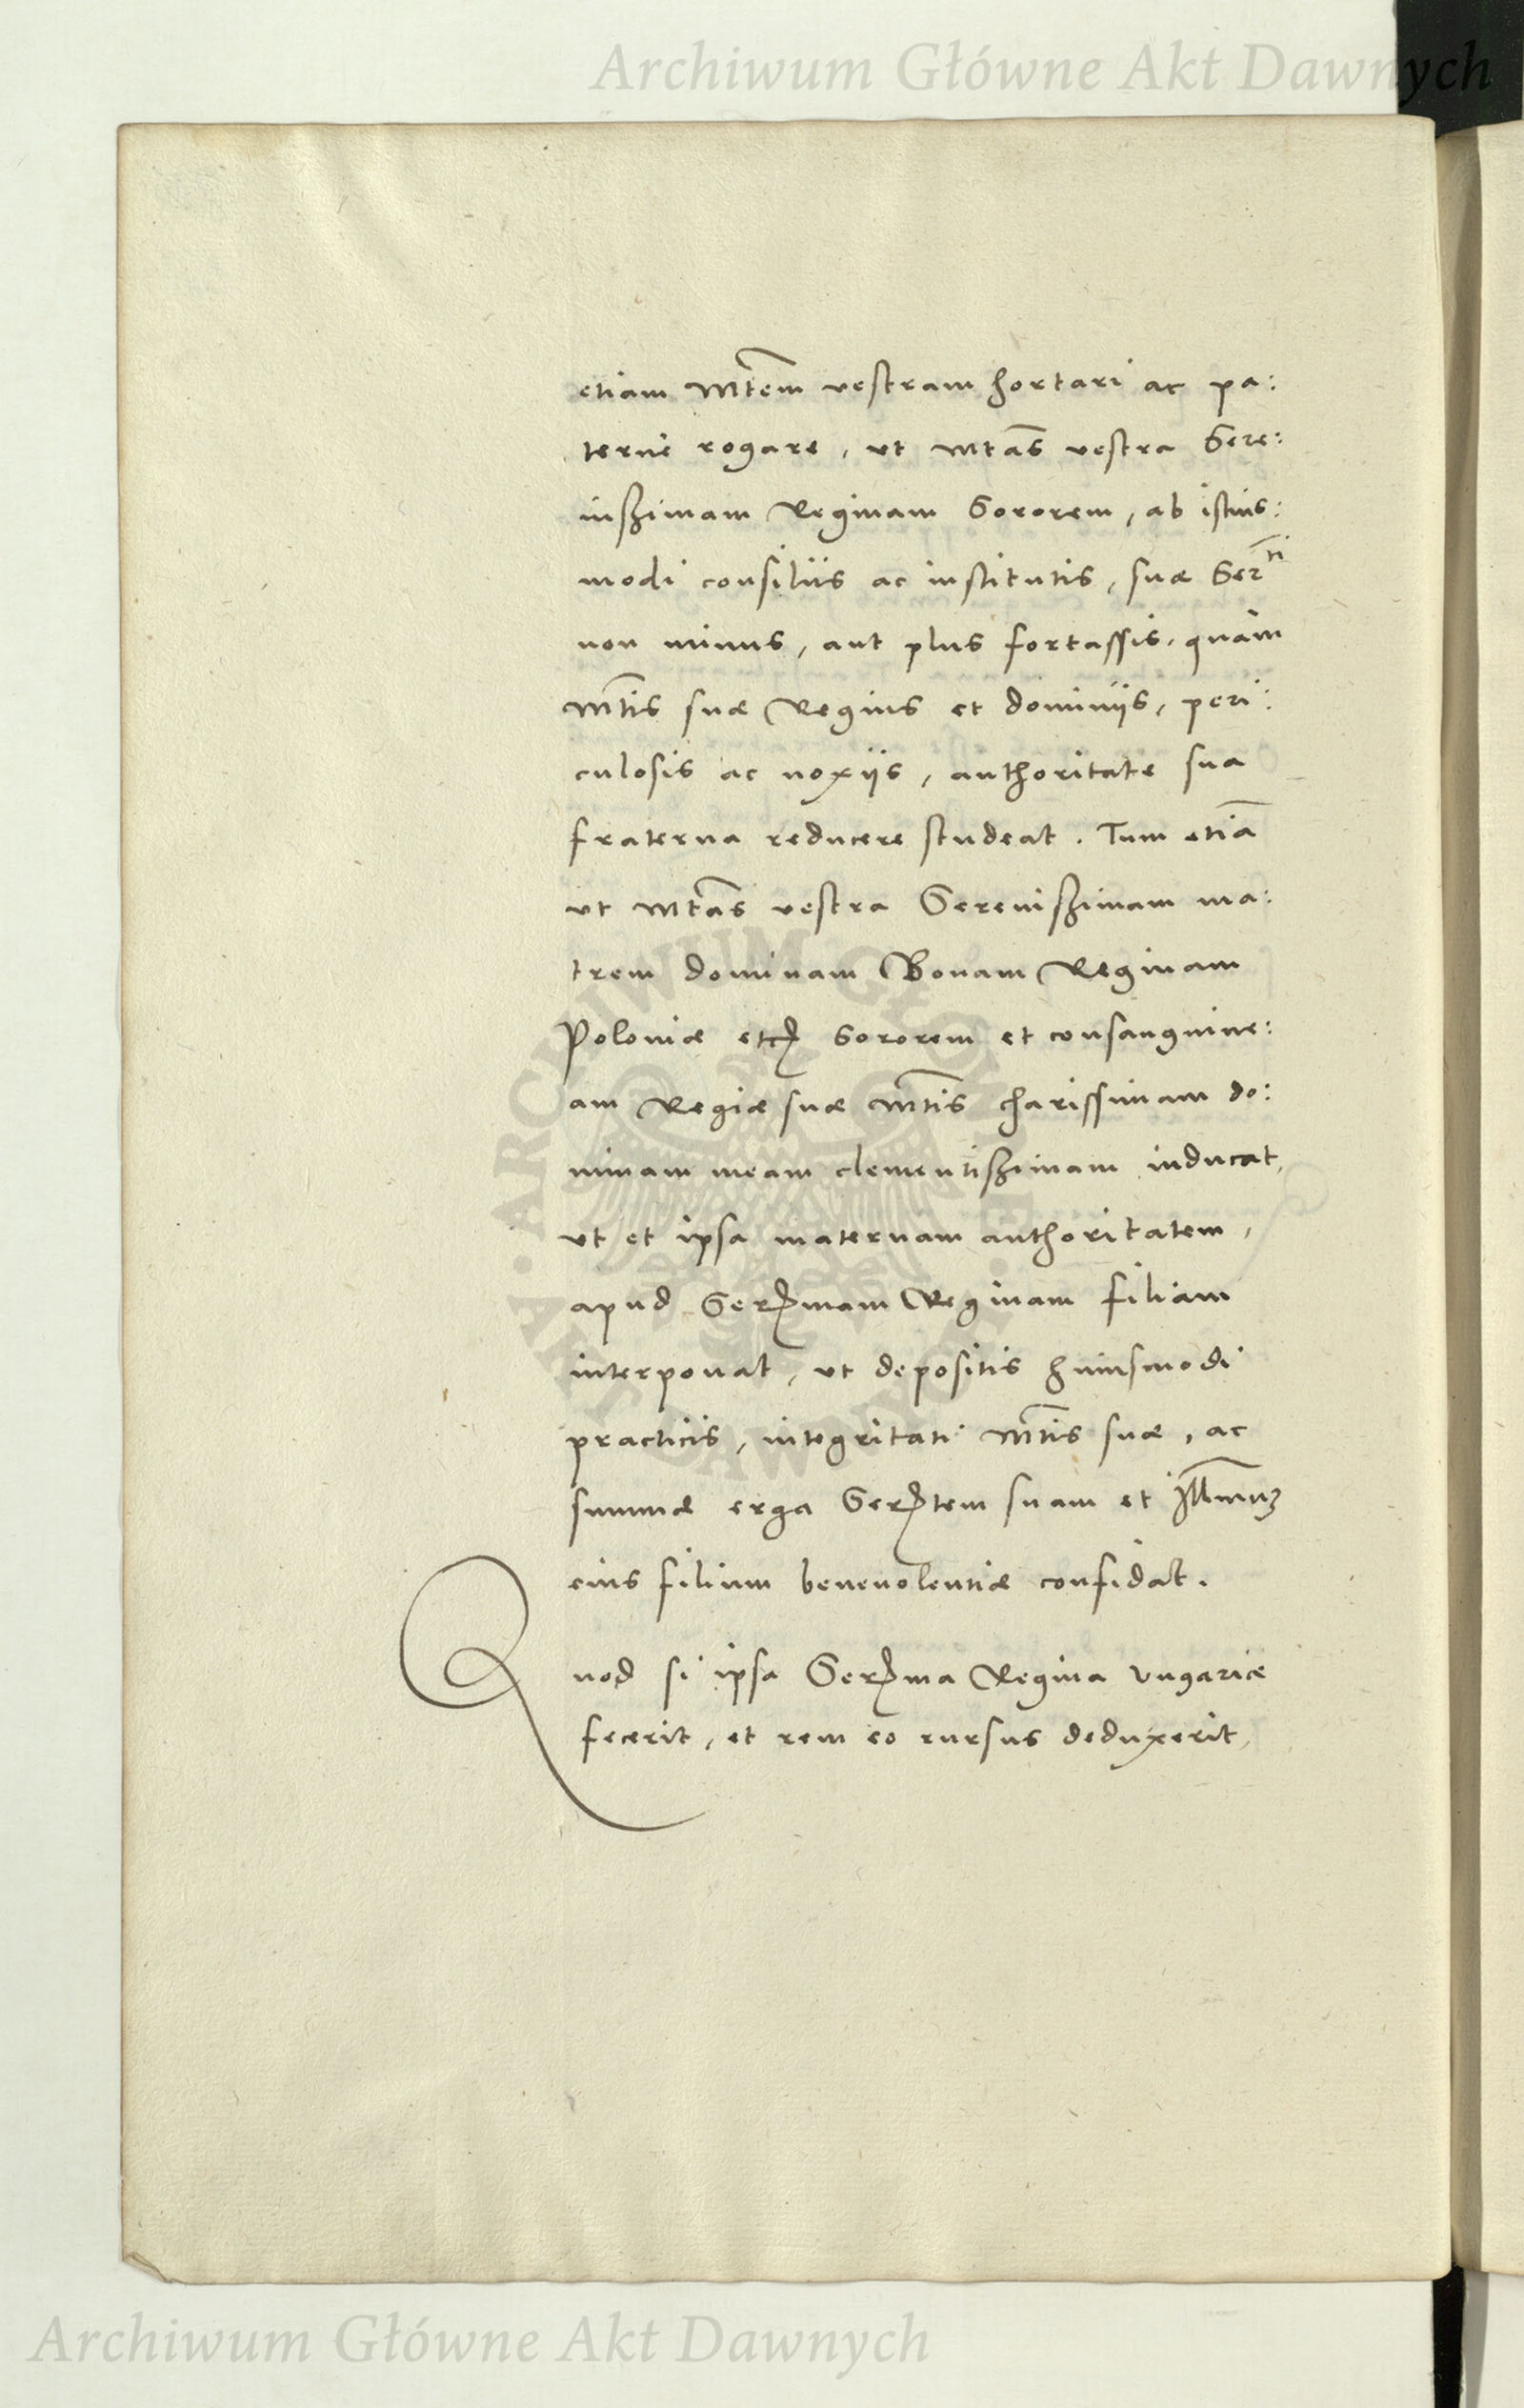 Archiwum Główne Akt Dawnych
etiam Mtem vestram hortari ac pa:
terne rogare, ut Mtas vestra Sere:
nissimam Reginam Sororem, ab istius:
modi consiliis ac institutis, suæ Serti
non minus, aut plus fortassis, quàm
Mtis suæ Regnis et dominiis, peri:
culosis ac noxiis, authoritate sua
fraterna reducere studeat. Tum etiā
ut Mtas vestra Serenissimam ma:
trem dominam Bonam Reginam
Poloniæ etc. Sororem et consanguine:
am Regiæ suæ Mtis charissimam do:
minam meam clementissimam inducat,
ut et ipsa maternam authoritatem,
apud Sermam Reginam filiam
interponat, ut depositis huiusmodi
practicis, integritati Mtis suæ, ac
summæ erga Sertem suam et Illmum
eius filium benevolentiæ confidat.
Quod si ipsa Serma Regina Ungariæ
fecerit, et rem eo rursus deduxerit,
ARCHIWUM GŁÓWNE AKT DAWNYCH
Archiwum Główne Akt Dawnych